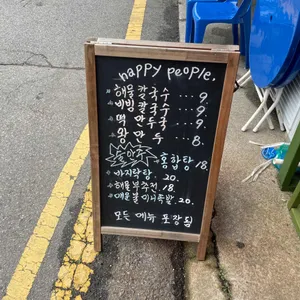 happy people.
해물칼국수 9.
비빔칼국수 9.
떡만두국 9.
왕만두 8.
술안주
홍합탕 18.
바지락탕 20.
해물부추전 18.
매운불미니족발 20.
모든 메뉴 포장됨